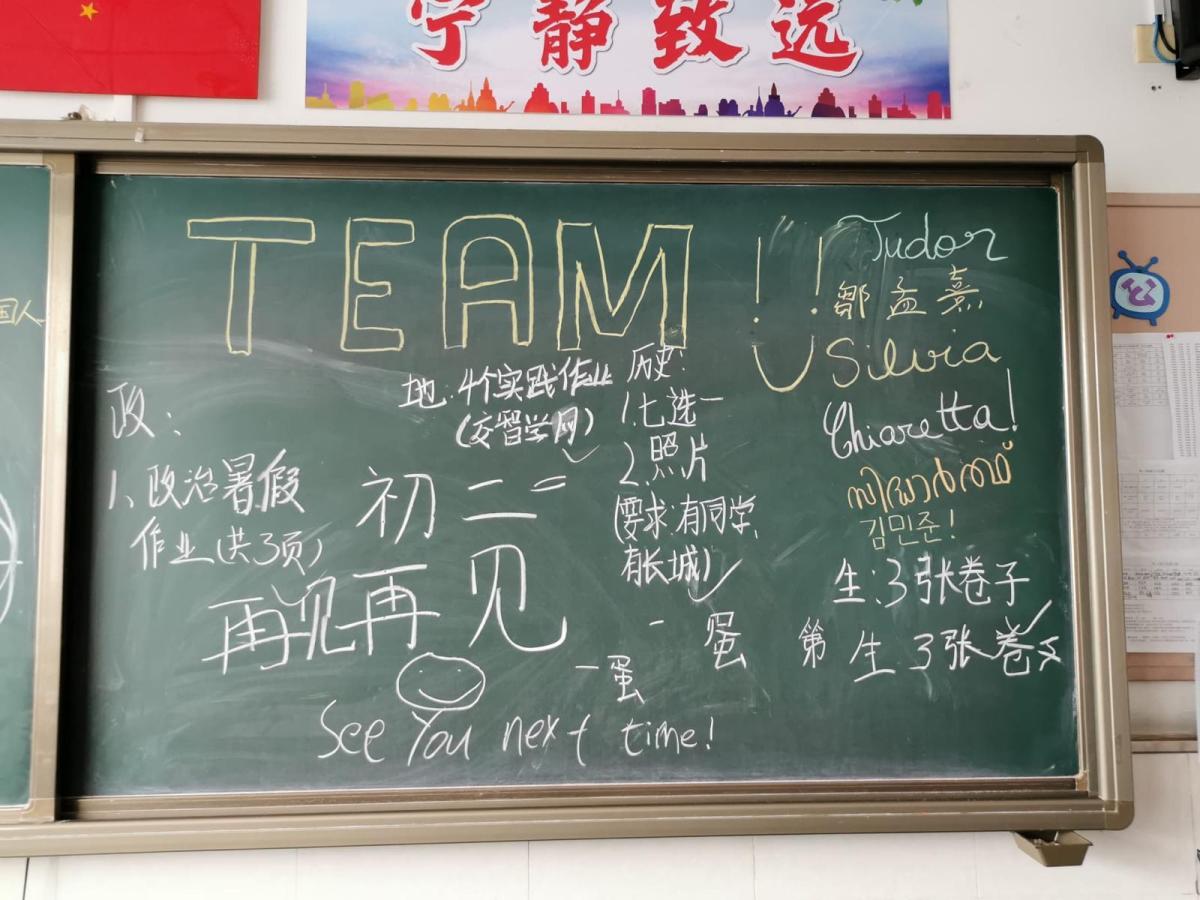 宁静致远
国人
TEAM!!
Tudor
邹孟熹
Silvia
Chiaretta!
김민준!
政:
1、政治暑假
作业(共3页)
地:4个实践作业
(交智学网)
历史:
1.七选一
2.照片
(要求:有同学,
有长城)
初二二
再见再见
生:3张卷子
一蛋
第
生:3张卷
一蛋
See You next time!
公